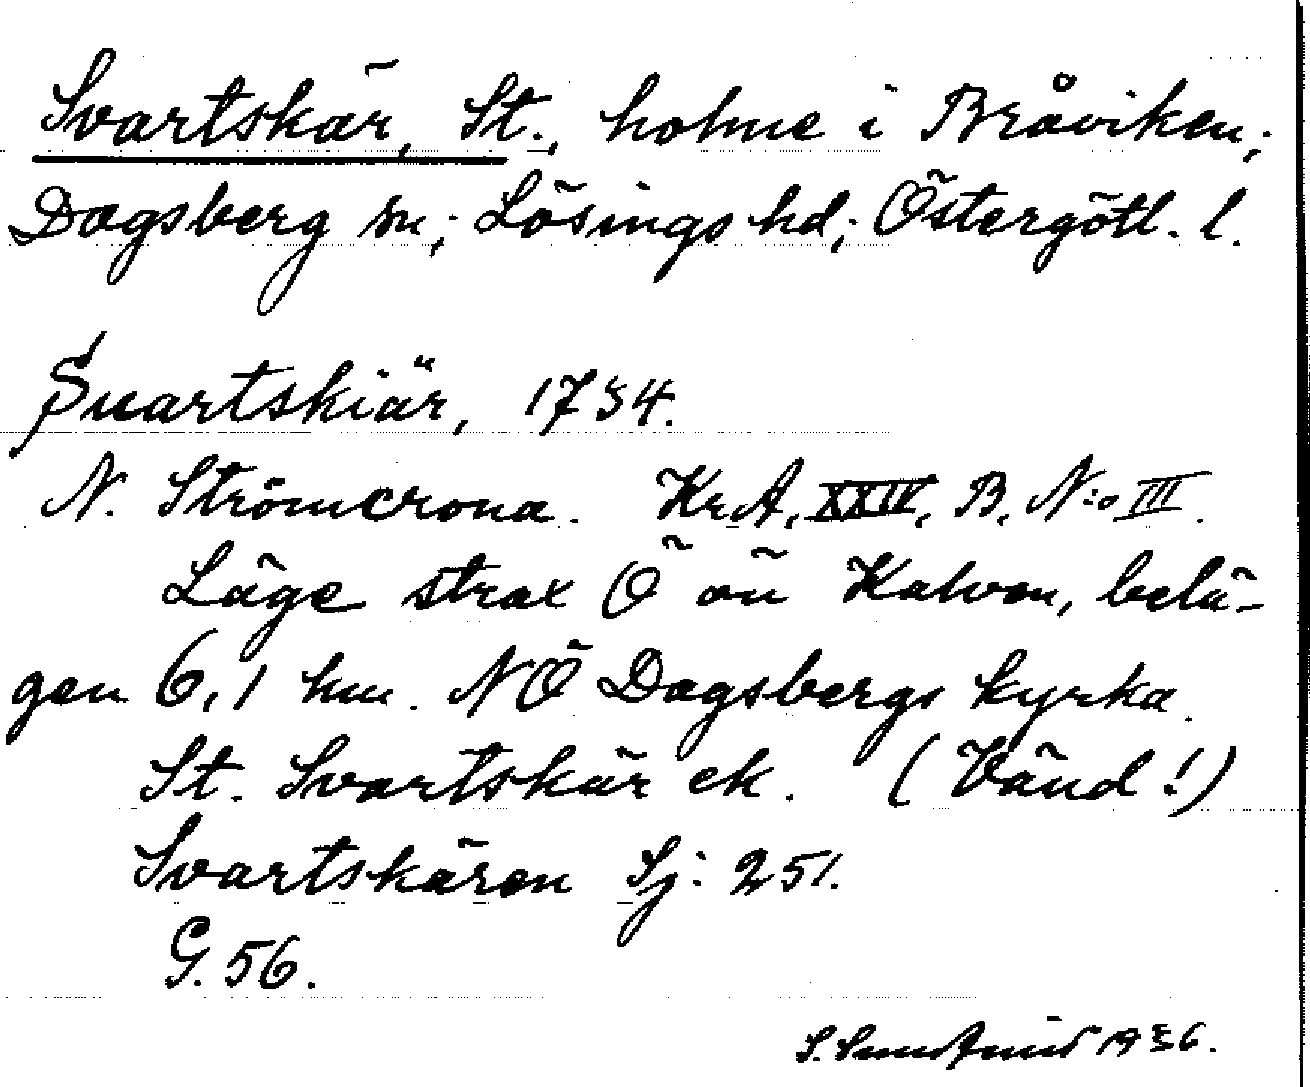 Svartskär, St., holme i Bråviken,
Dagsberg sn, Lösings hd, Östergötl. l.
Svartskiär, 1734.
N. Strömcrona. Kr.A, XXIV, B, N:o III.
Läge strax Ö om Kalven, belä-
gen 6,1 km. NÖ Dagsbergs kyrka.
St. Svartskär ek. (Vänd!)
Svartskären Sj: 251.
G. 56.
S. 1936.